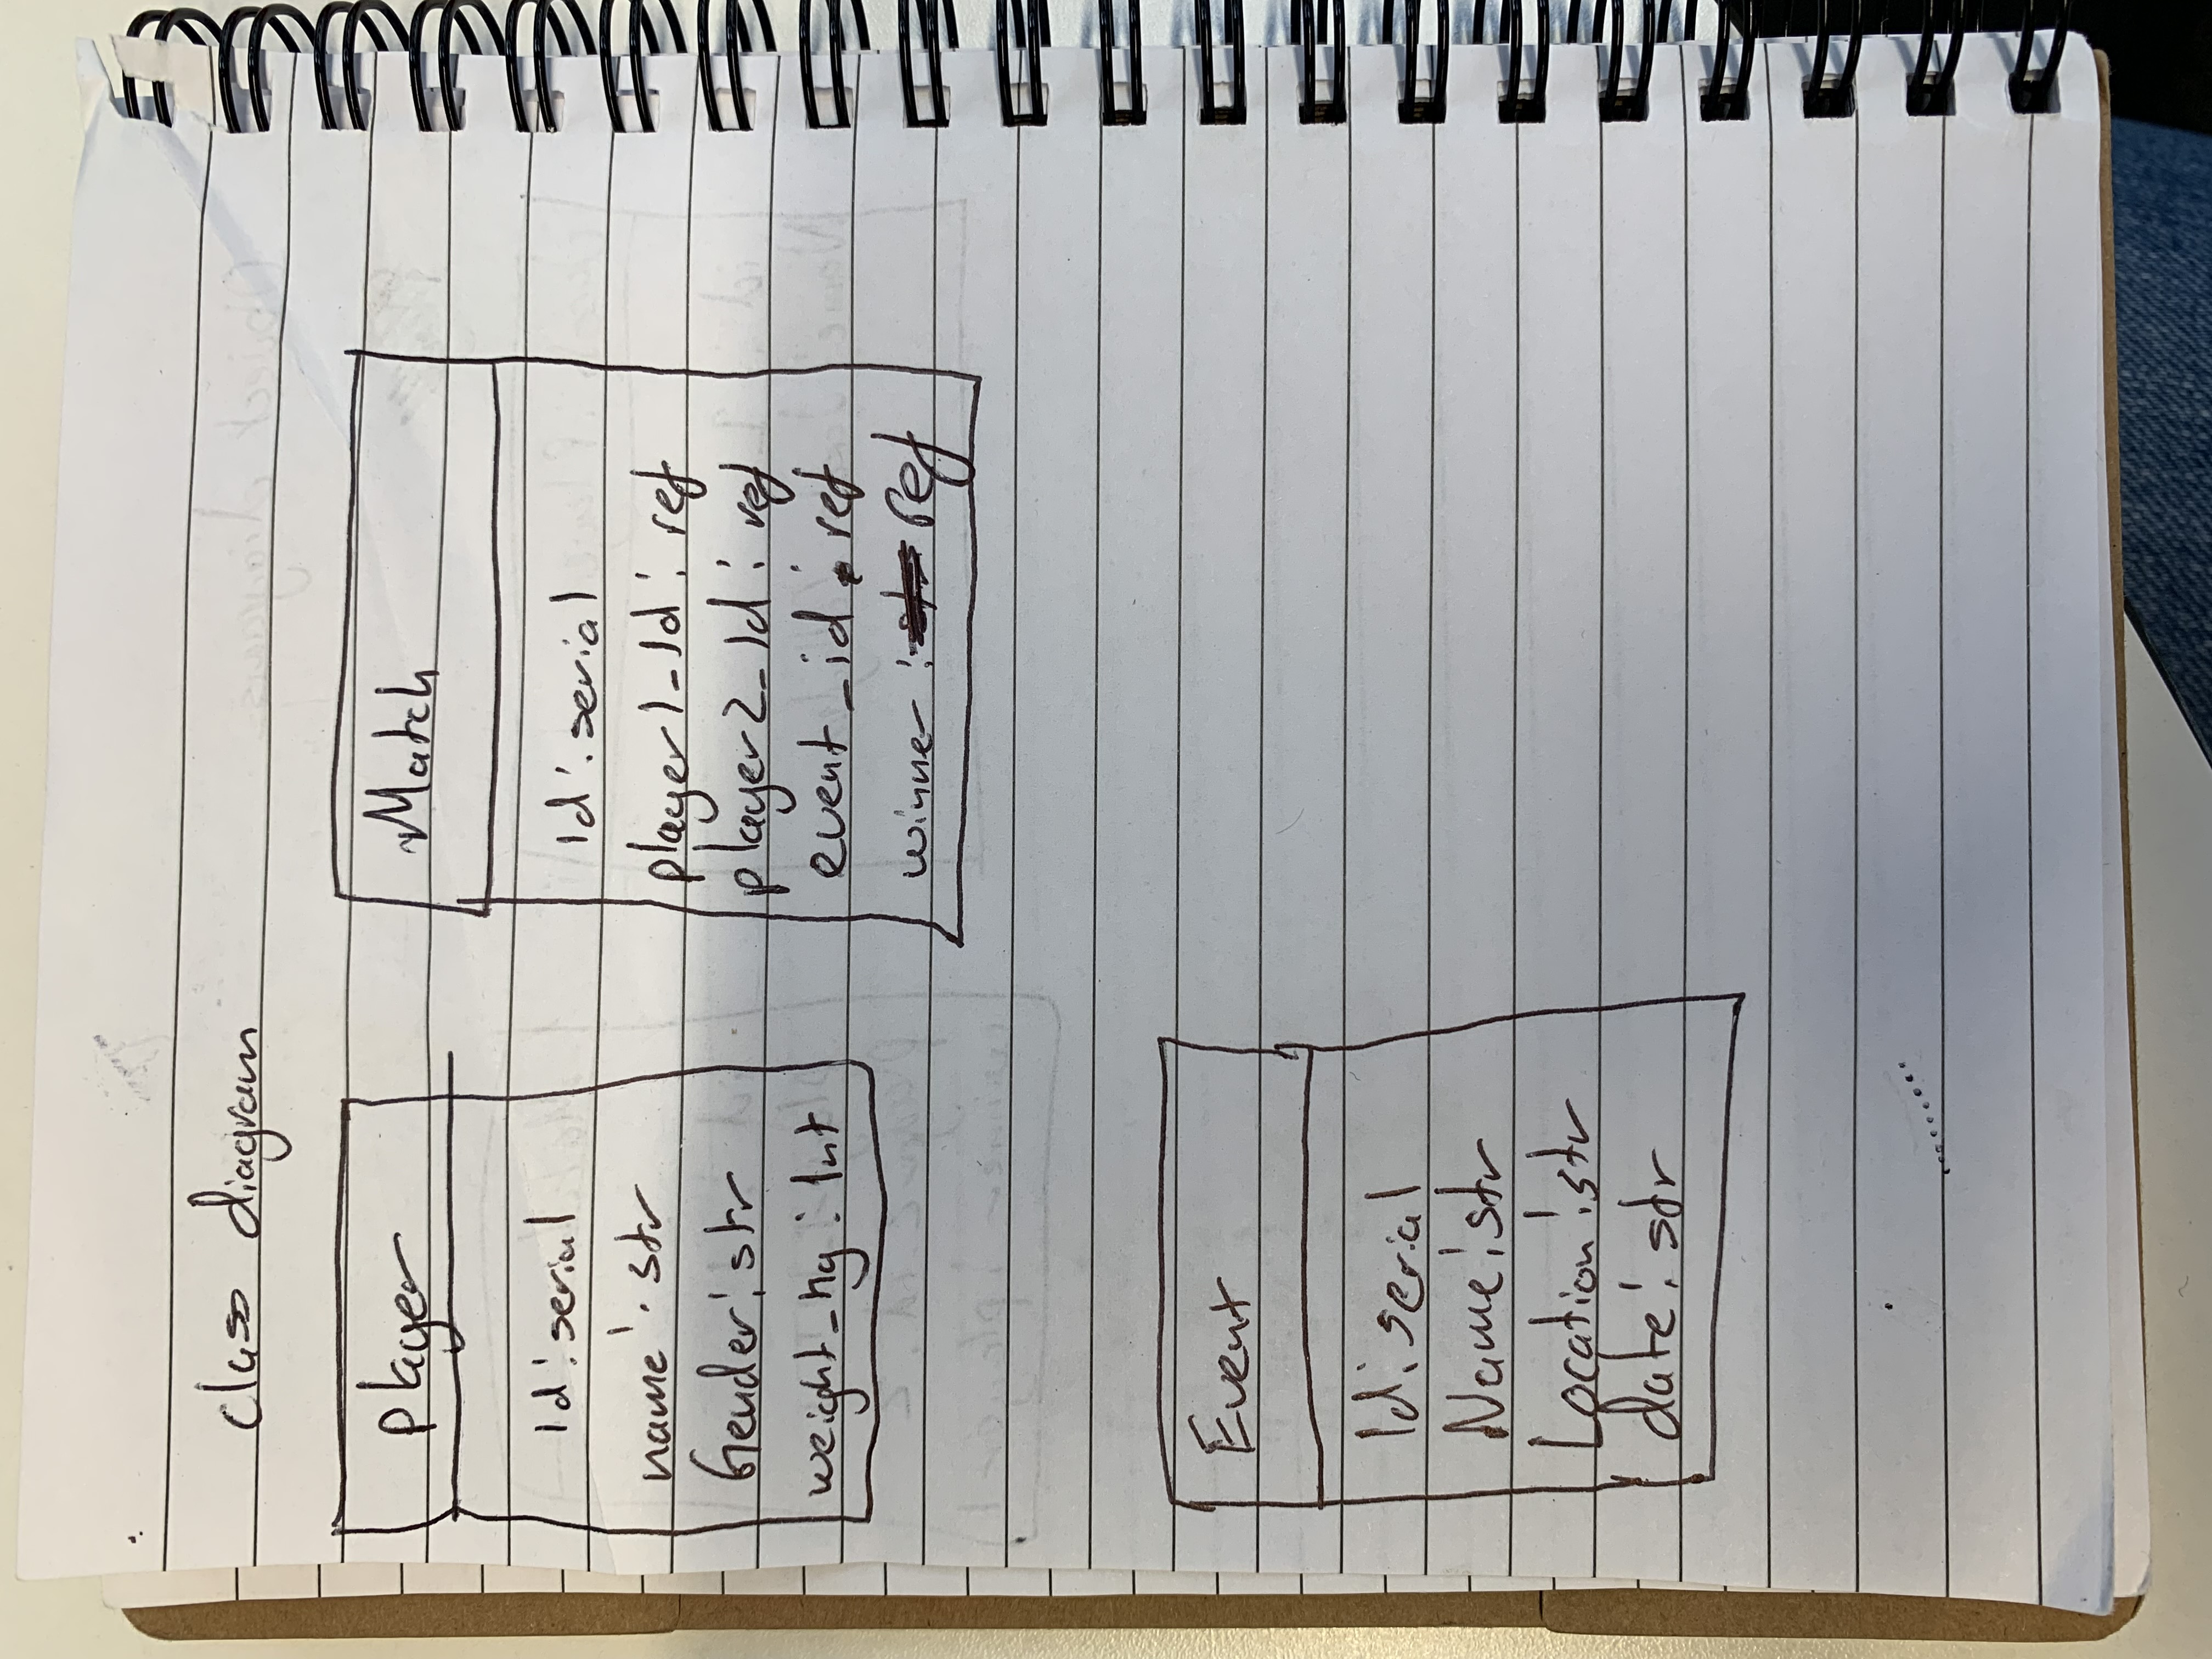 class diagram
player
Id: serial
name: str
Gender: str
weight_kg: Int
Match
Id: serial
player1_Id: ref
player2_Id: ref
event_id: ref
winner: ref
Event
Id: serial
Name: str
Location: str
date: str